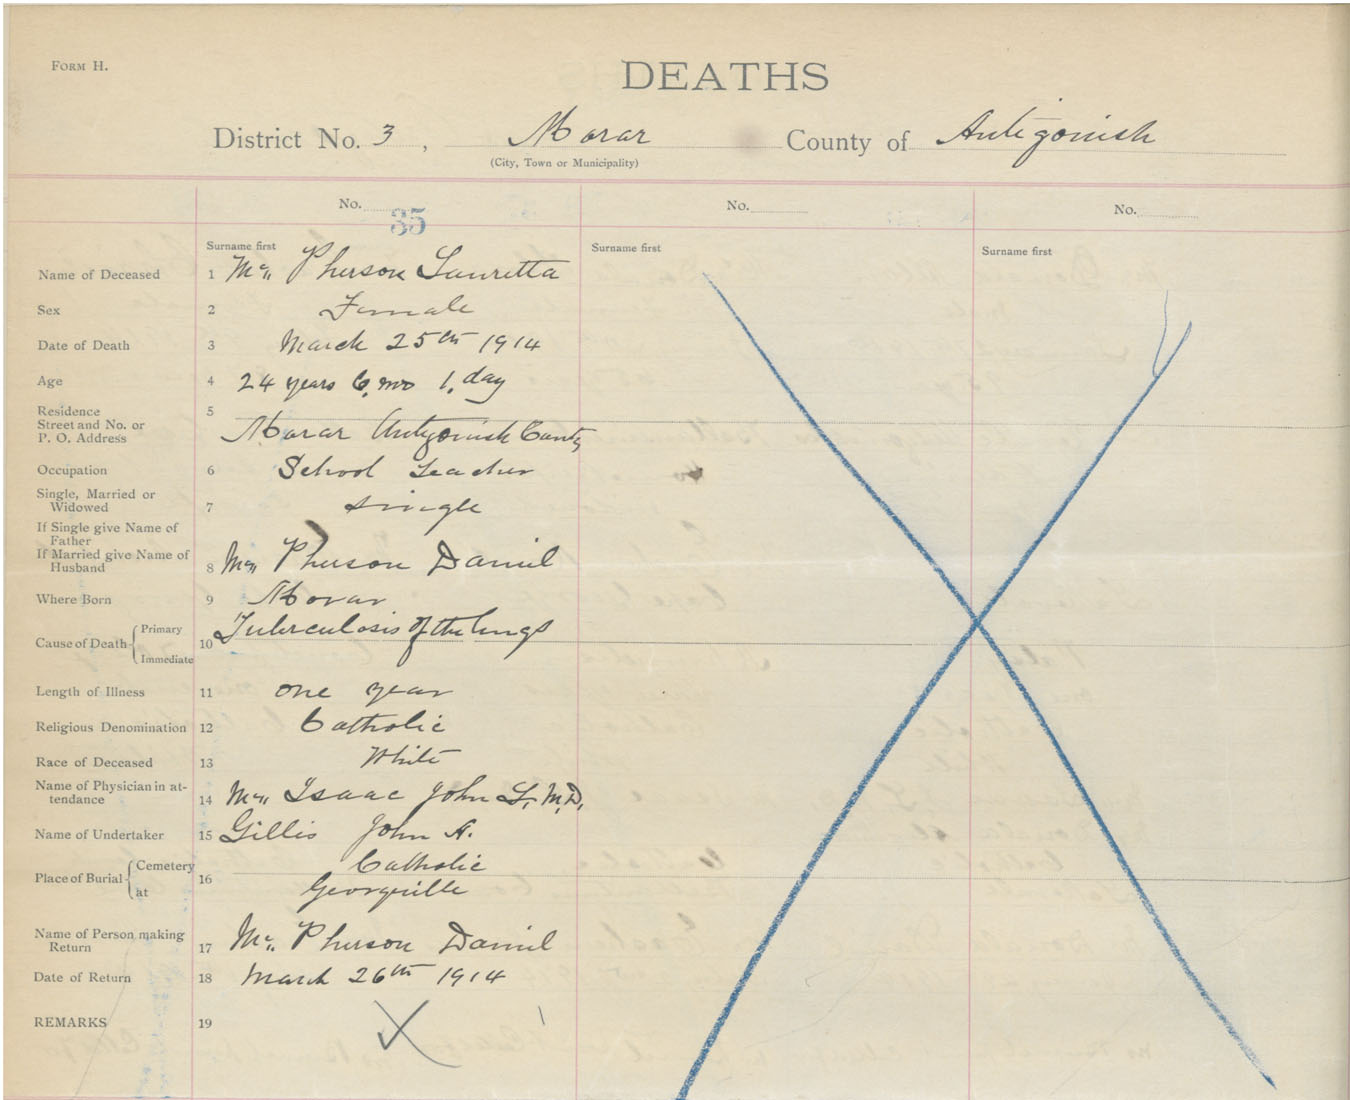 FORM H.
DEATHS
District No. 3, Morar County of Antigonish
(City, Town or Municipality)
No. 35 No. No.
Surname first Surname first Surname first
Name of Deceased 1 Mc Pherson Lauretta
Sex 2 Female
Date of Death 3 March 25th 1914
Age 4 24 years 6, mo 1, day
Residence 5
Street and No. or
P. O. Address Morar Antigonish County
Occupation 6 School Teacher
Single, Married or
Widowed 7 single
If Single give Name of
Father
If Married give Name of
Husband 8 Mc Pherson Daniel
Where Born 9 Morar
Cause of Death Primary 10 Tuberculosis of the lungs
Immediate
Length of Illness 11 one year
Religious Denomination 12 Catholic
Race of Deceased 13 White
Name of Physician in at-
tendance 14 Mc Isaac John L, M,D,
Name of Undertaker 15 Gillis John A.
Place of Burial Cemetery 16 Catholic
at Georgeville
Name of Person making
Return 17 Mc Pherson Daniel
Date of Return 18 March 26th 1914
REMARKS 19